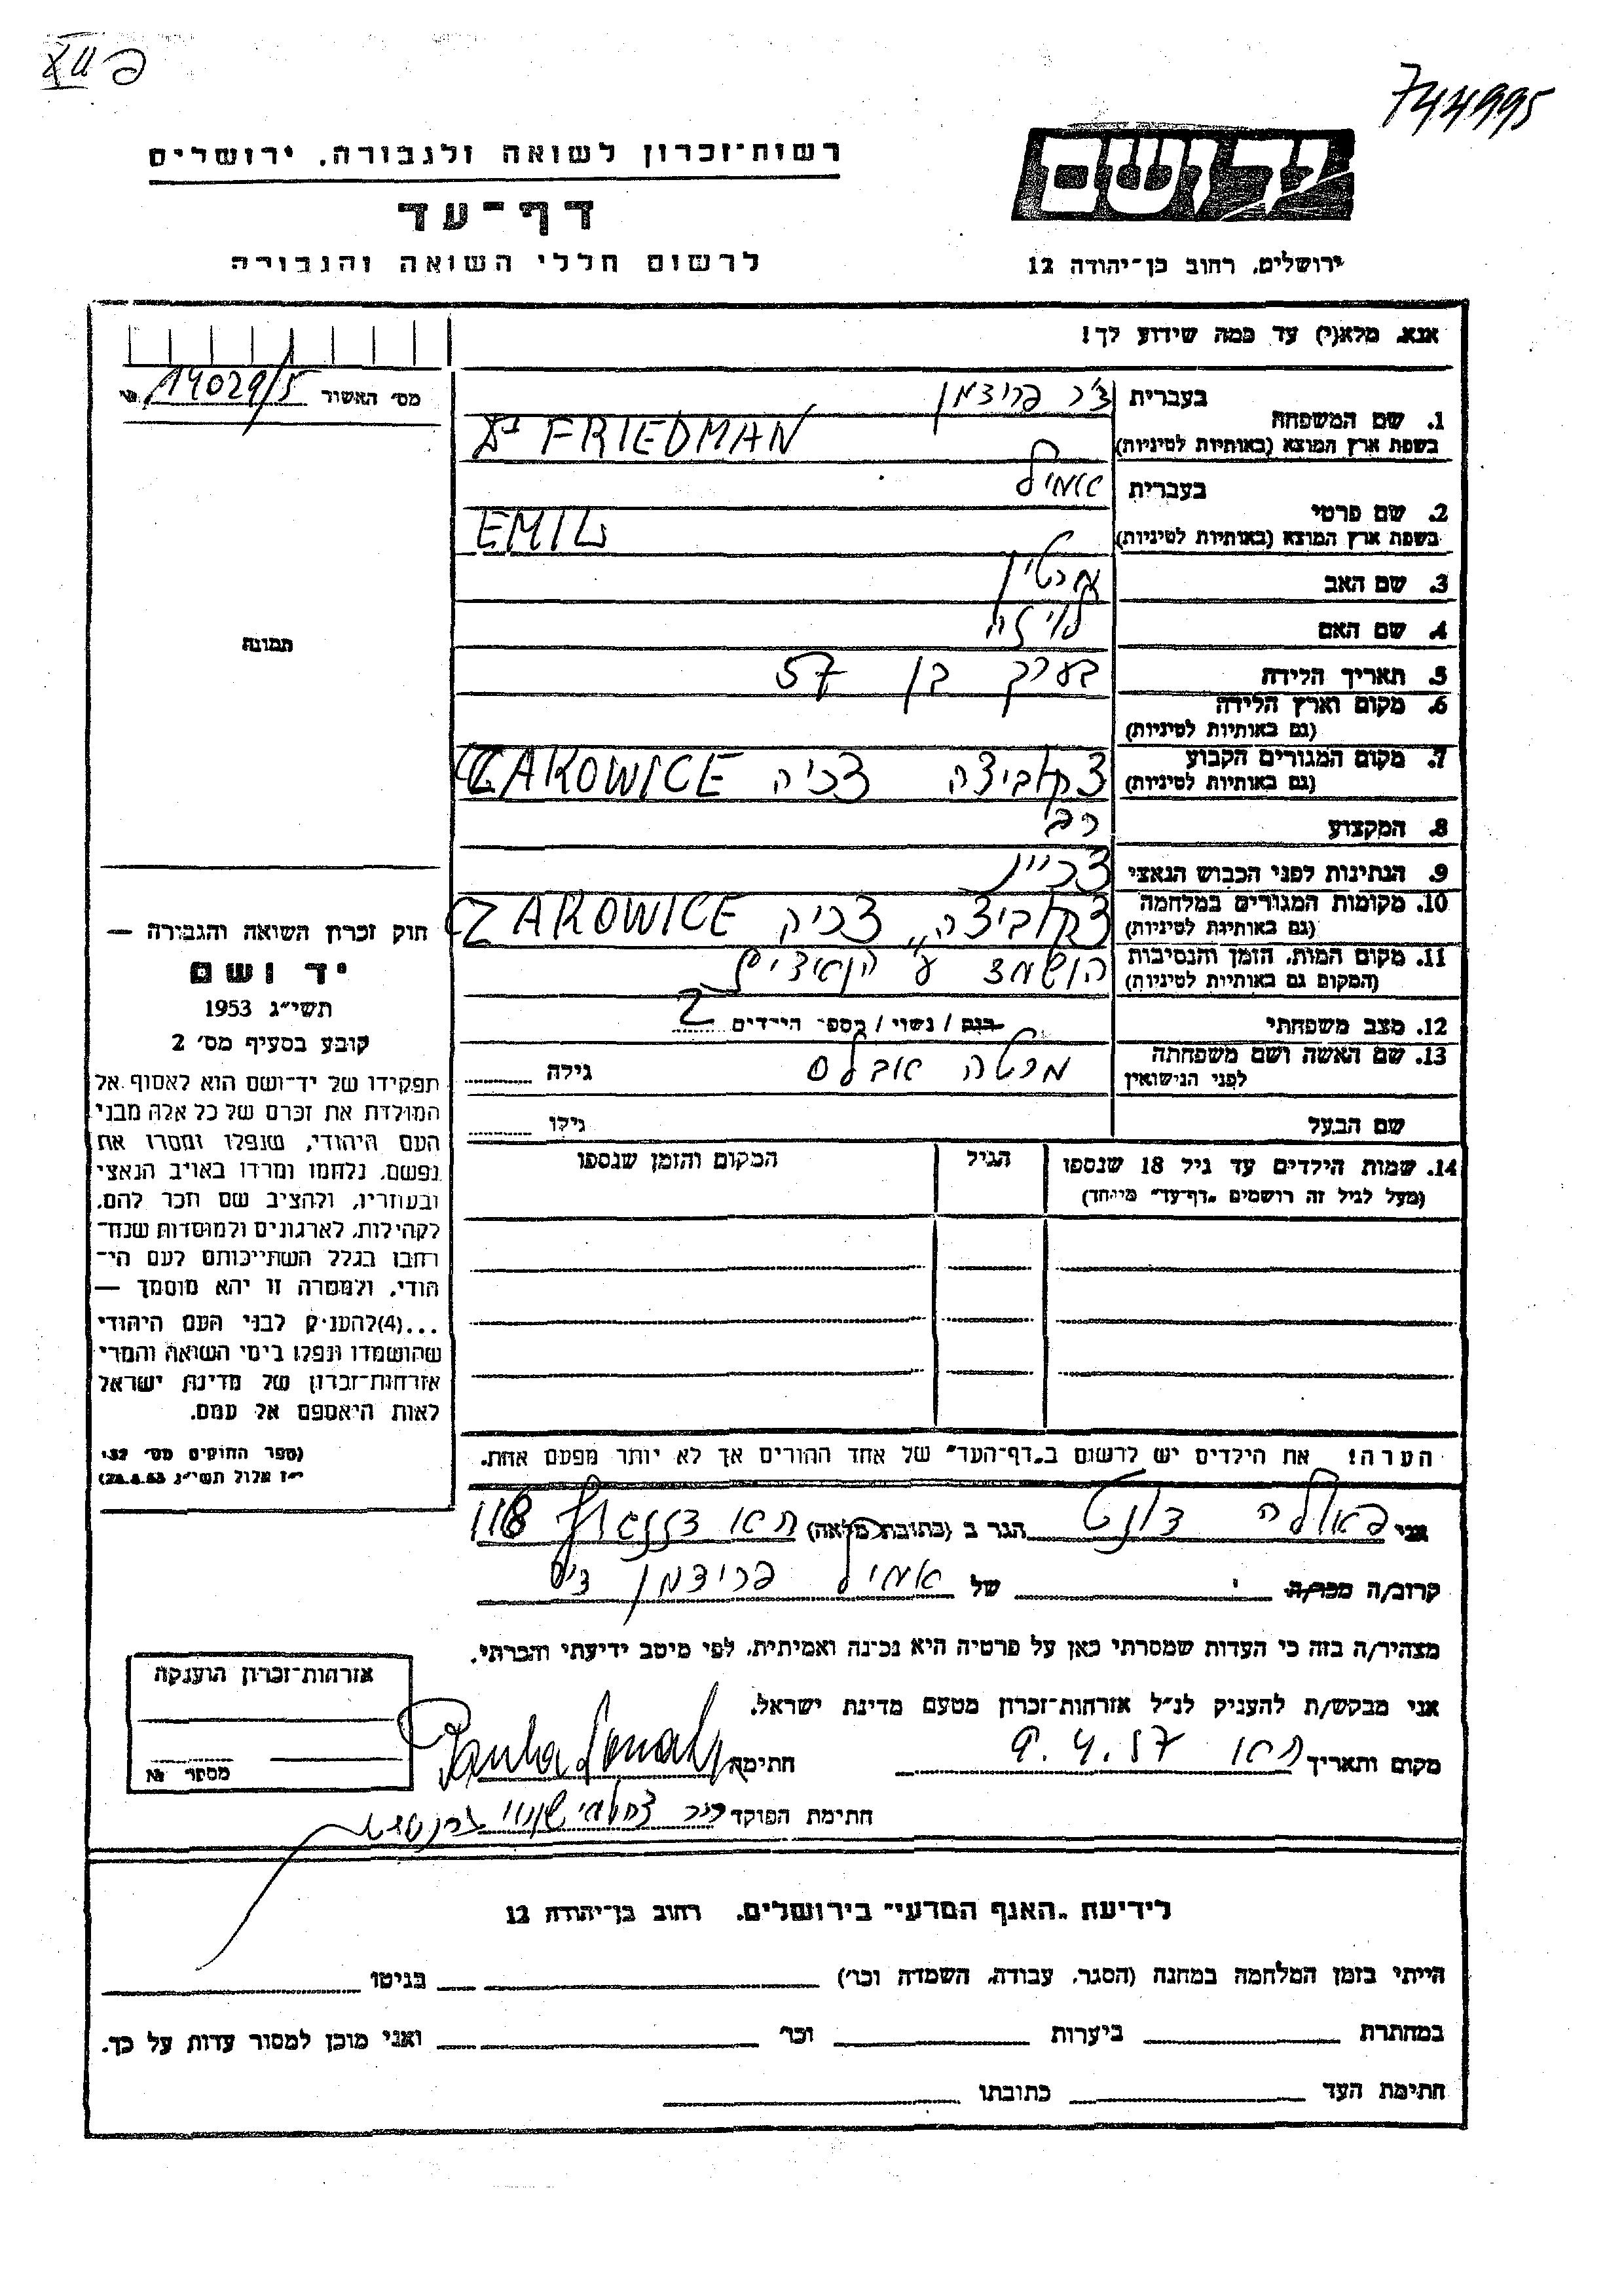 פ XII
744995
רשות־זכרון לשואה ולגבורה, ירושלים
יד ושם
דף־עד
לרשום חללי השואה והגבורה
ירושלים, רחוב בן־יהודה 12
אנא, מלא(י) עד כמה שידוע לך!
מס׳ האשור 14029/5 №
1. שם המשפחה בעברית ד״ר פרידמן
בשפת ארץ המוצא (באותיות לטיניות) FRIEDMAN
2. שם פרטי בעברית אמיל
בשפת ארץ המוצא (באותיות לטיניות) EMIL
3. שם האב
4. שם האם
5. תאריך הלידה בערך בן 57
6. מקום וארץ הלידה
(גם באותיות לטיניות)
7. מקום המגורים הקבוע צקוביצה צכיה CZAKOWICE
(גם באותיות לטיניות)
8. המקצוע רב
9. הנתינות לפני הכבוש הנאצי
10. מקומות המגורים במלחמה צקוביצה, צכיה CZAKOWICE
(גם באותיות לטיניות)
11. מקום המות, הזמן והנסיבות הושמד ע״י הנאצים
(המקום גם באותיות לטיניות)
12. מצב משפחתי רווק / נשוי / מספר הילדים 2
13. שם האשה ושם משפחתה מרטה אבלס גילה
לפני הנישואין
שם הבעל גילו
14. שמות הילדים עד גיל 18 שנספו הגיל המקום והזמן שנספו
(מעל לגיל זה רושמים „דף־עד״ מיוחד)
הערה! את הילדים יש לרשום ב„דף־העד״ של אחד ההורים אך לא יותר מפעם אחת.
תמונה
חוק זכרון השואה והגבורה —
יד ושם
תשי״ג 1953
קובע בסעיף מס׳ 2
תפקידו של יד־ושם הוא לאסוף אל
המולדת את זכרם של כל אלה מבני
העם היהודי, שנפלו ומסרו את
נפשם, נלחמו ומרדו באויב הנאצי
ובעוזריו, ולהציב שם וזכר להם,
לקהילות, לארגונים ולמוסדות שנח־
רבו בגלל השתייכותם לעם הי־
הודי, ולמטרה זו יהא מוסמך —
...(4) להעניק לבני העם היהודי
שהושמדו ונפלו בימי השואה והמרי
אזרחות־זכרון של מדינת ישראל
לאות היאספם אל עמם.
(ספר החוקים מס׳ 132
י״ז אלול תשי״ג 28.8.53)
אני פאולה הגר ב (כתובת מלאה) 118
קרוב/ה מכר/ה של אמיל פרידמן
מצהיר/ה בזה כי העדות שמסרתי כאן על פרטיה היא נכונה ואמיתית, לפי מיטב ידיעתי והכרתי.
אני מבקש/ת להעניק לנ״ל אזרחות־זכרון מטעם מדינת ישראל.
מקום ותאריך 9.4.57 חתימה
חתימת הפוקד
אזרחות־זכרון הוענקה
מספר №
לידיעת „האגף המדעי״ בירושלים, רחוב בן־יהודה 12
הייתי בזמן המלחמה במחנה (הסגר, עבודה, השמדה וכו׳) בגיטו
במחתרת ביערות וכו׳ ואני מוכן למסור עדות על כך.
חתימת העד כתובתו